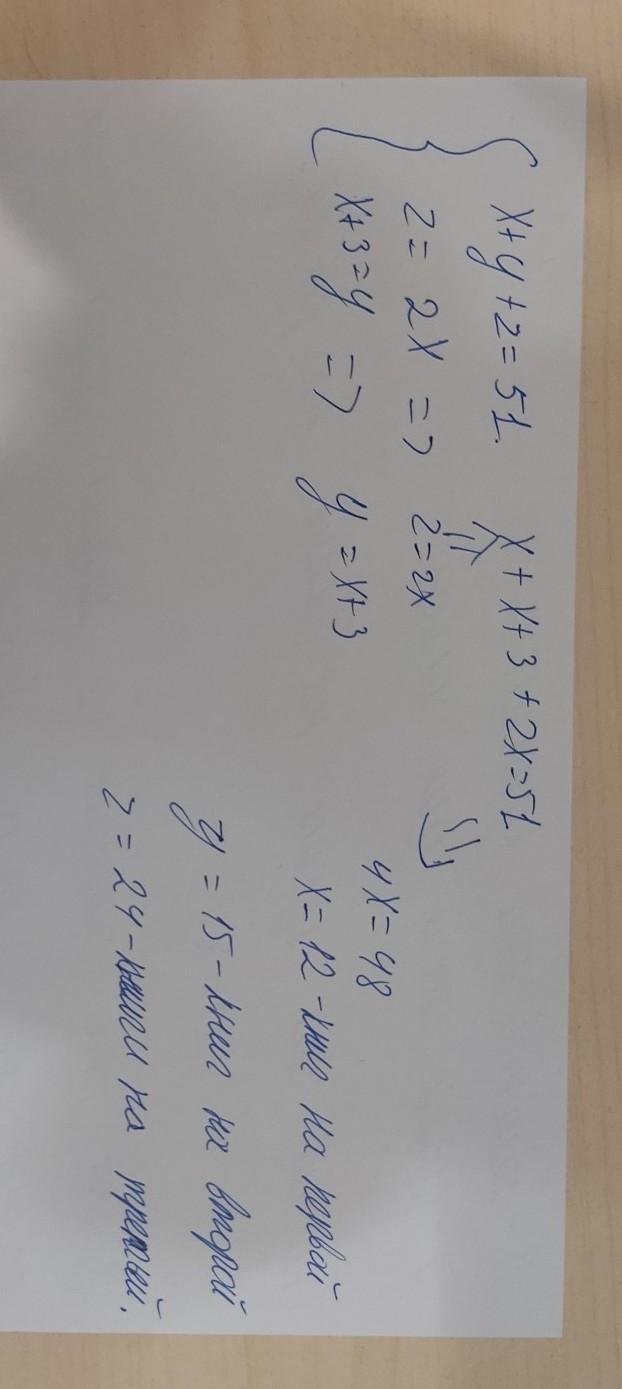 x+y+z=51. x+x+3+2x=51
z=2x => z=2x
x+3=y => y=x+3
4x=48
x=12-книг на первой
y=15-книг на второй
z=24-книги на третьей.